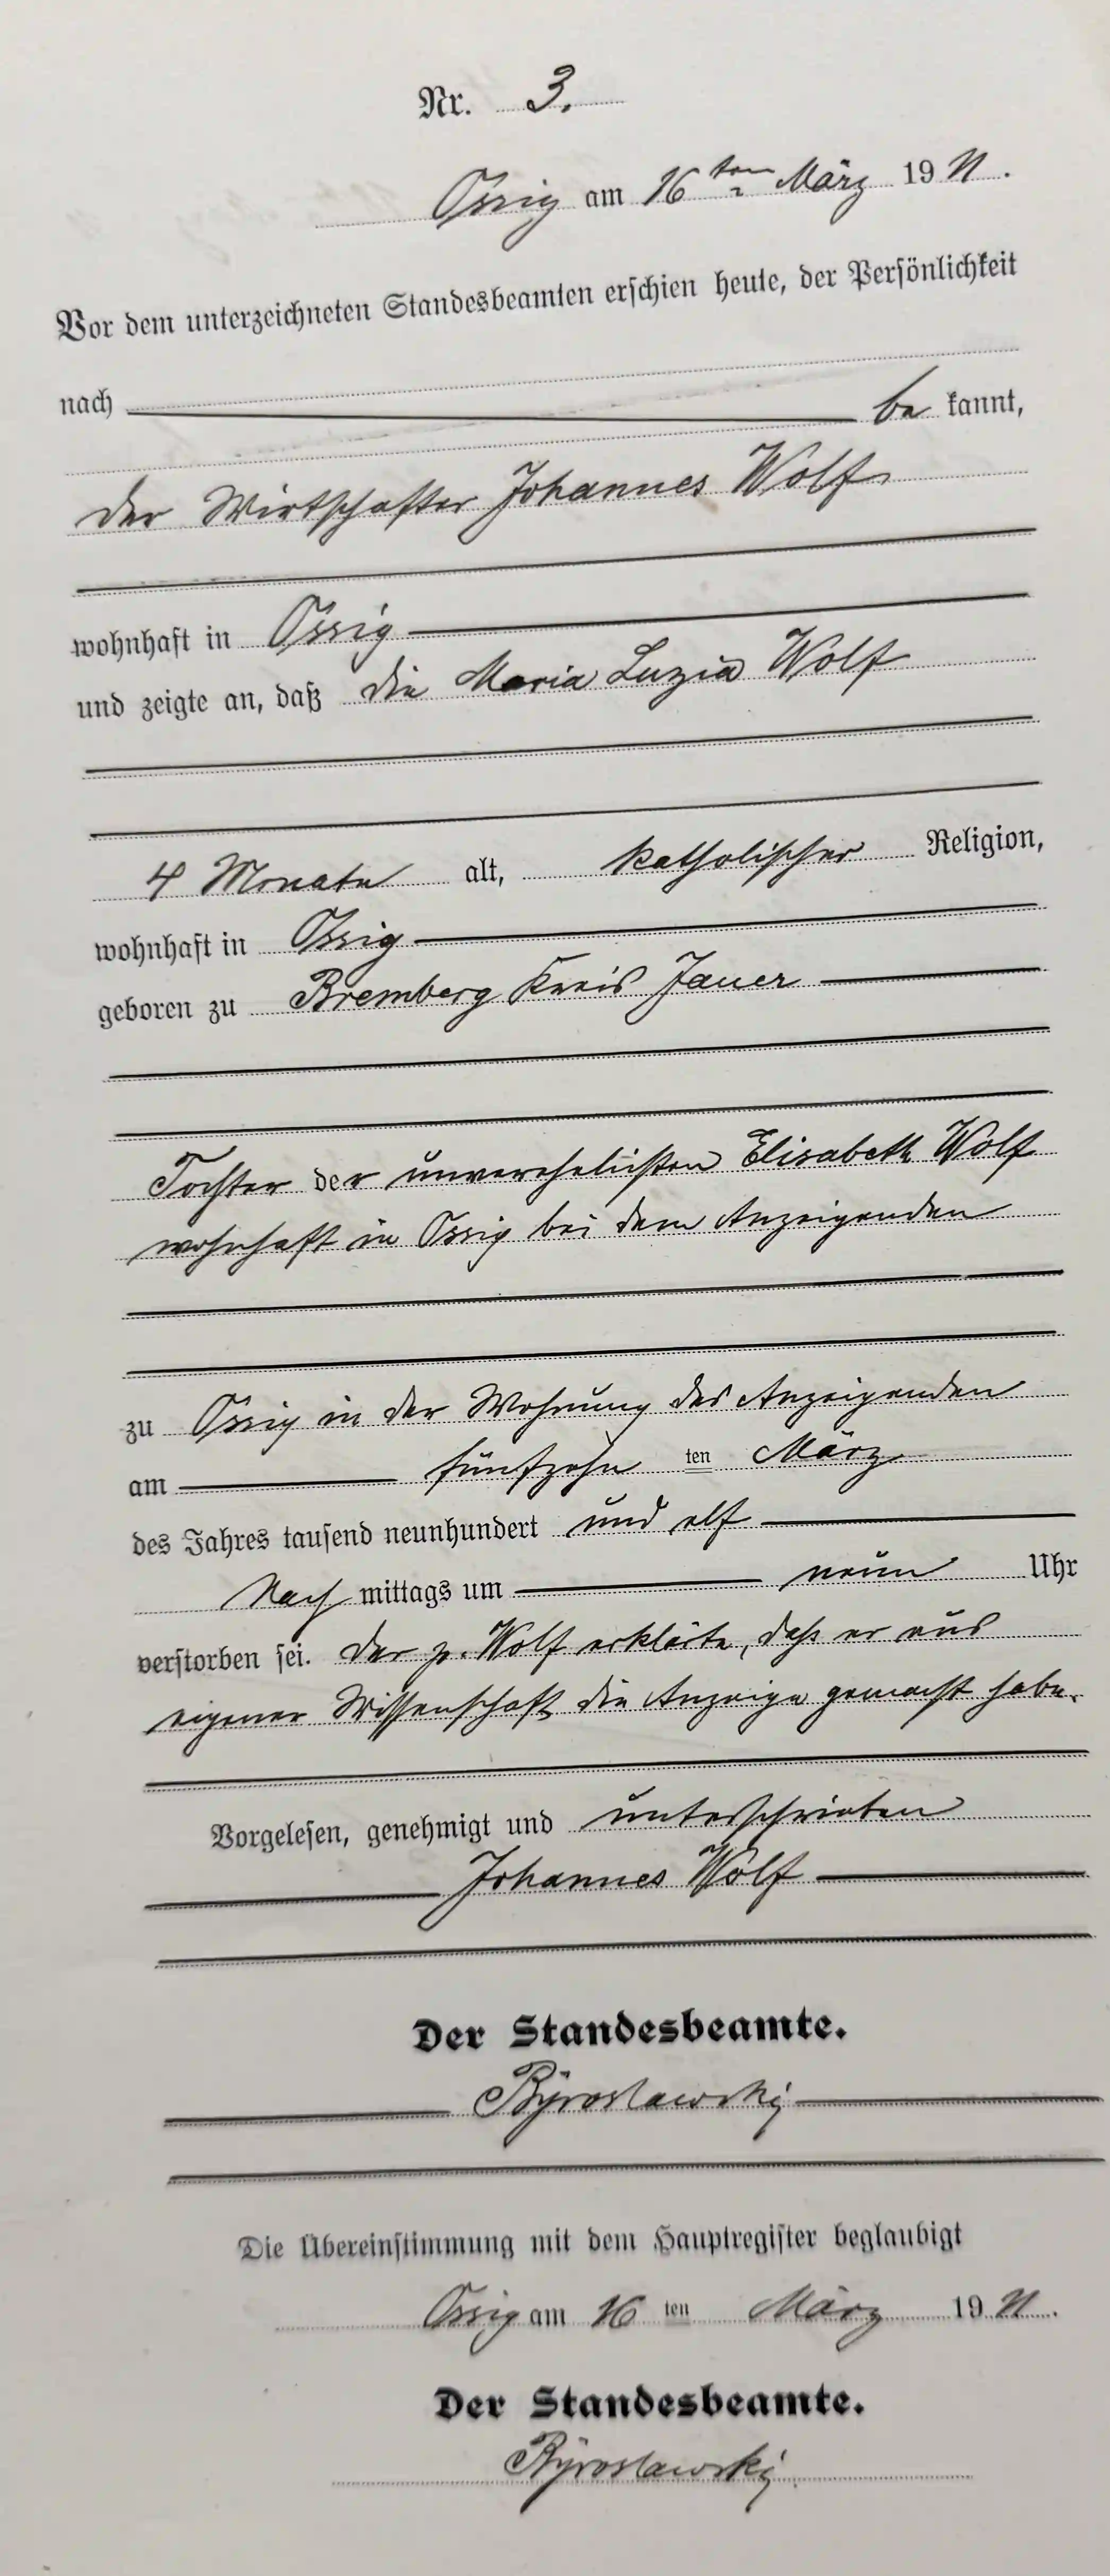 Nr. 3.
Ossig am 16ten März 1911.
Vor dem unterzeichneten Standesbeamten erschien heute, der Persönlichkeit
nach be kannt,
der Wirtschafter Johannes Wolf
wohnhaft in Ossig
und zeigte an, daß die Maria Luzia Wolf
4 Monate alt, katholischer Religion,
wohnhaft in Ossig
geboren zu Bremberg Kreis Jauer
Tochter der unverehelichten Elisabeth Wolf
wohnhaft in Ossig bei dem Anzeigenden
zu Ossig in der Wohnung des Anzeigenden
am fünfzehn ten März
des Jahres tausend neunhundert und elf
Nach mittags um neun Uhr
verstorben sei. Der p. Wolf erklärte, daß er aus
eigener Wissenschaft die Anzeige gemacht habe.
Vorgelesen, genehmigt und unterschrieben
Johannes Wolf
Der Standesbeamte.
Die Übereinstimmung mit dem Hauptregister beglaubigt
Ossig am 16 ten März 1911.
Der Standesbeamte.